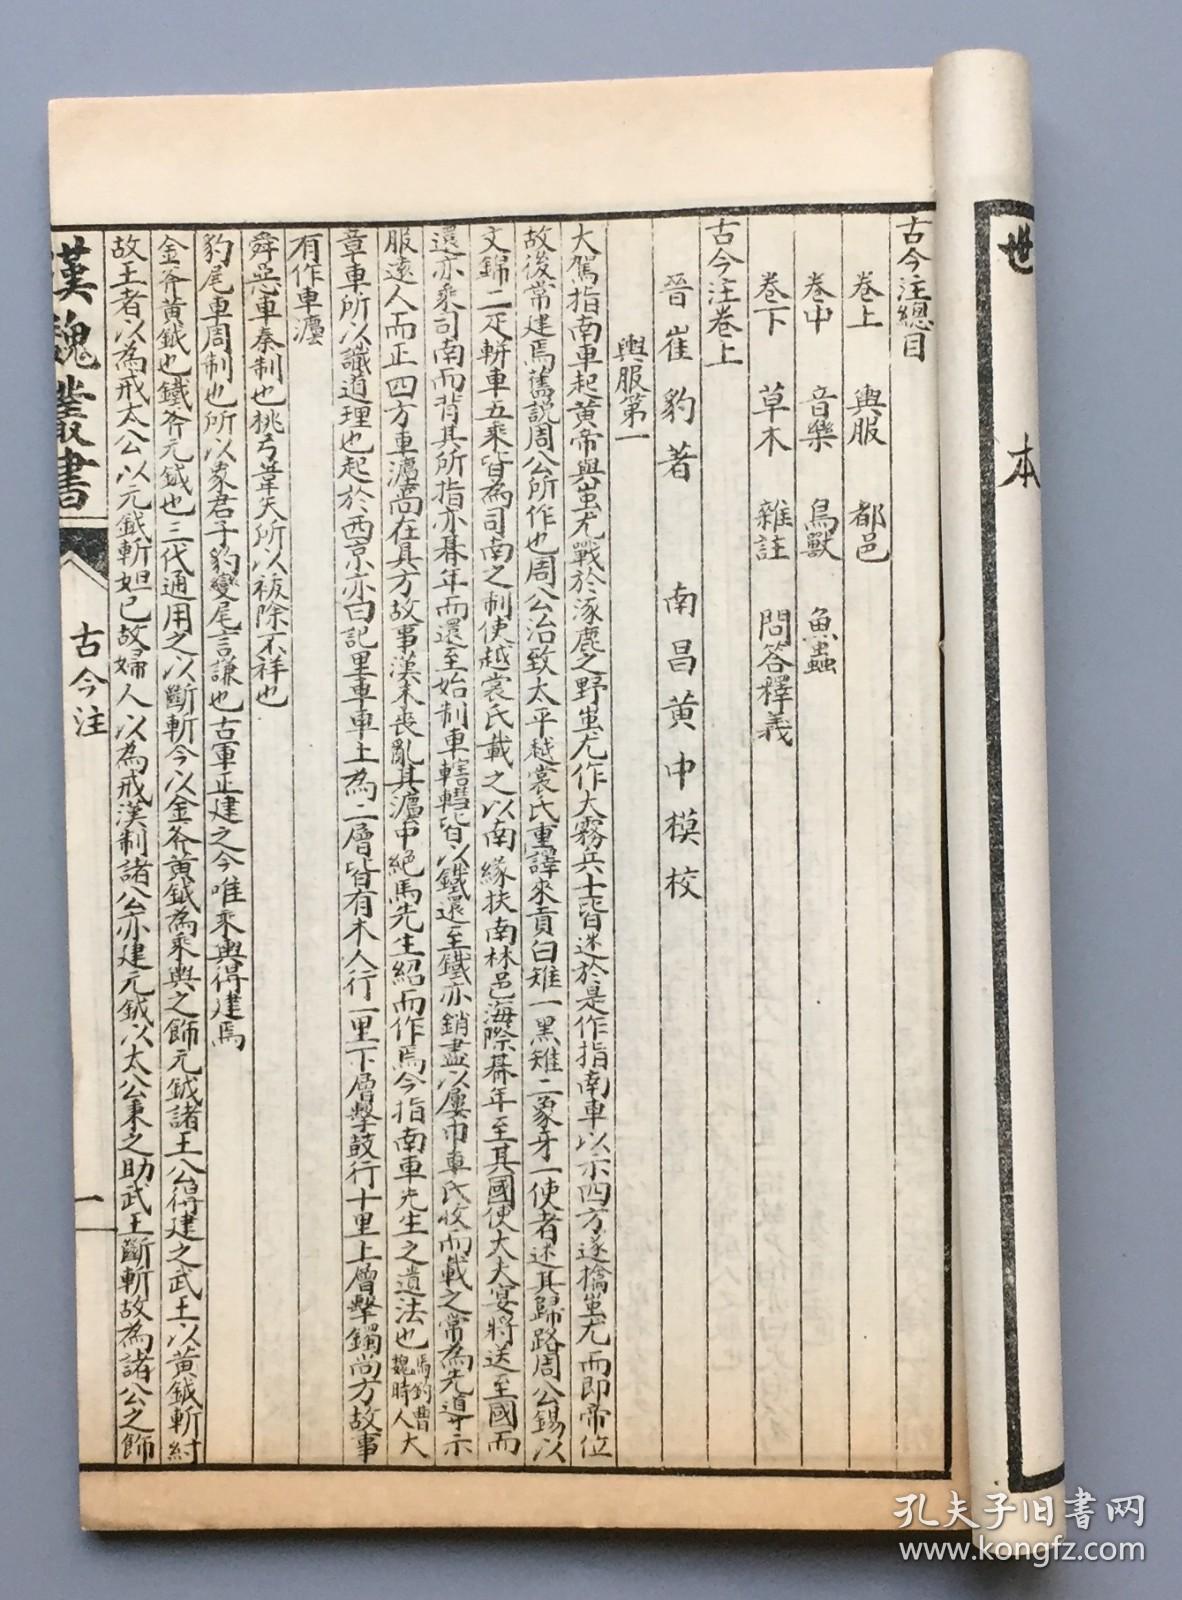 世本
古今注總目
卷上 輿服 都邑
卷中 音樂 鳥獸 魚蟲
卷下 草木 雜註 問答釋義
古今注卷上
晉崔豹著 南昌黃中模校
輿服第一
大駕指南車起黃帝與蚩尤戰於涿鹿之野蚩尤作大霧兵士皆迷於是作指南車以示四方遂擒蚩尤而即帝位
故後常建焉舊說周公所作也周公治致太平越裳氏重譯來貢白雉一黑雉二象牙一使者迷其歸路周公錫以
文錦二疋軿車五乘皆為司南之制使越裳氏載之以南緣扶南林邑海際朞年至其國使大夫宴將送至國而
還亦乘司南而背其所指亦朞年而還至始制車轄轊皆以鐵還至鐵亦銷盡以屬巾車氏收而載之常為先導示
服遠人而正四方車灋尚在其方故事漢末喪亂其灋中絕馬先生紹而作焉今指南車先生之遺法也馬鈞曹魏時人大
章車所以識道理也起於西京亦曰記里車車上為二層皆有木人行一里下層擊鼓行十里上層擊鐲尚方故事
有作車灋
辟惡車秦制也桃弓葦矢所以祓除不祥也
豹尾車周制也所以象君子豹變尾言謙也古軍正建之今唯乘輿得建焉
金斧黃鉞也鐵斧元鉞也三代通用之以斷斬今以金斧黃鉞為乘輿之飾元鉞諸王公得建之武王以黃鉞斬紂
故王者以為戒太公以元鉞斬妲己故婦人以為戒漢制諸公亦建元鉞以太公秉之助武王斷斬故為諸公之飾
漢魏叢書 古今注 一
孔夫子旧书网
www.kongfz.com